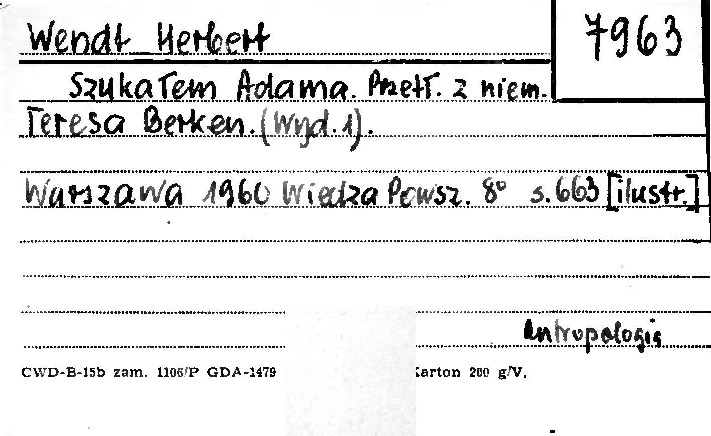 Wendt Herbert
7963
Szukałem Adama. Przetł. z niem.
Teresa Berken. (Wyd. 1).
Warszawa 1960 Wiedza Powsz. 8° s. 663 [ilustr.]
Antropologia
CWD-B-15b zam. 1106/P GDA-1479 Karton 200 g/V.